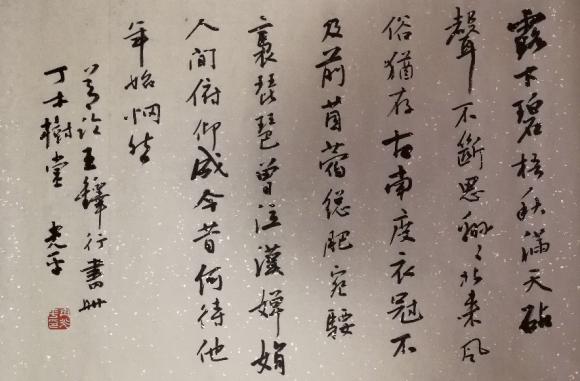 露下碧梧秋滿天砧
聲不斷思綿々北來風
俗猶存古南度衣冠不
及前苜蓿總肥宛騕
褭琵琶曾泣漢嬋娟
人間俯仰成今昔何待他
年始惘然
臨王鐸行書冊
木樹堂